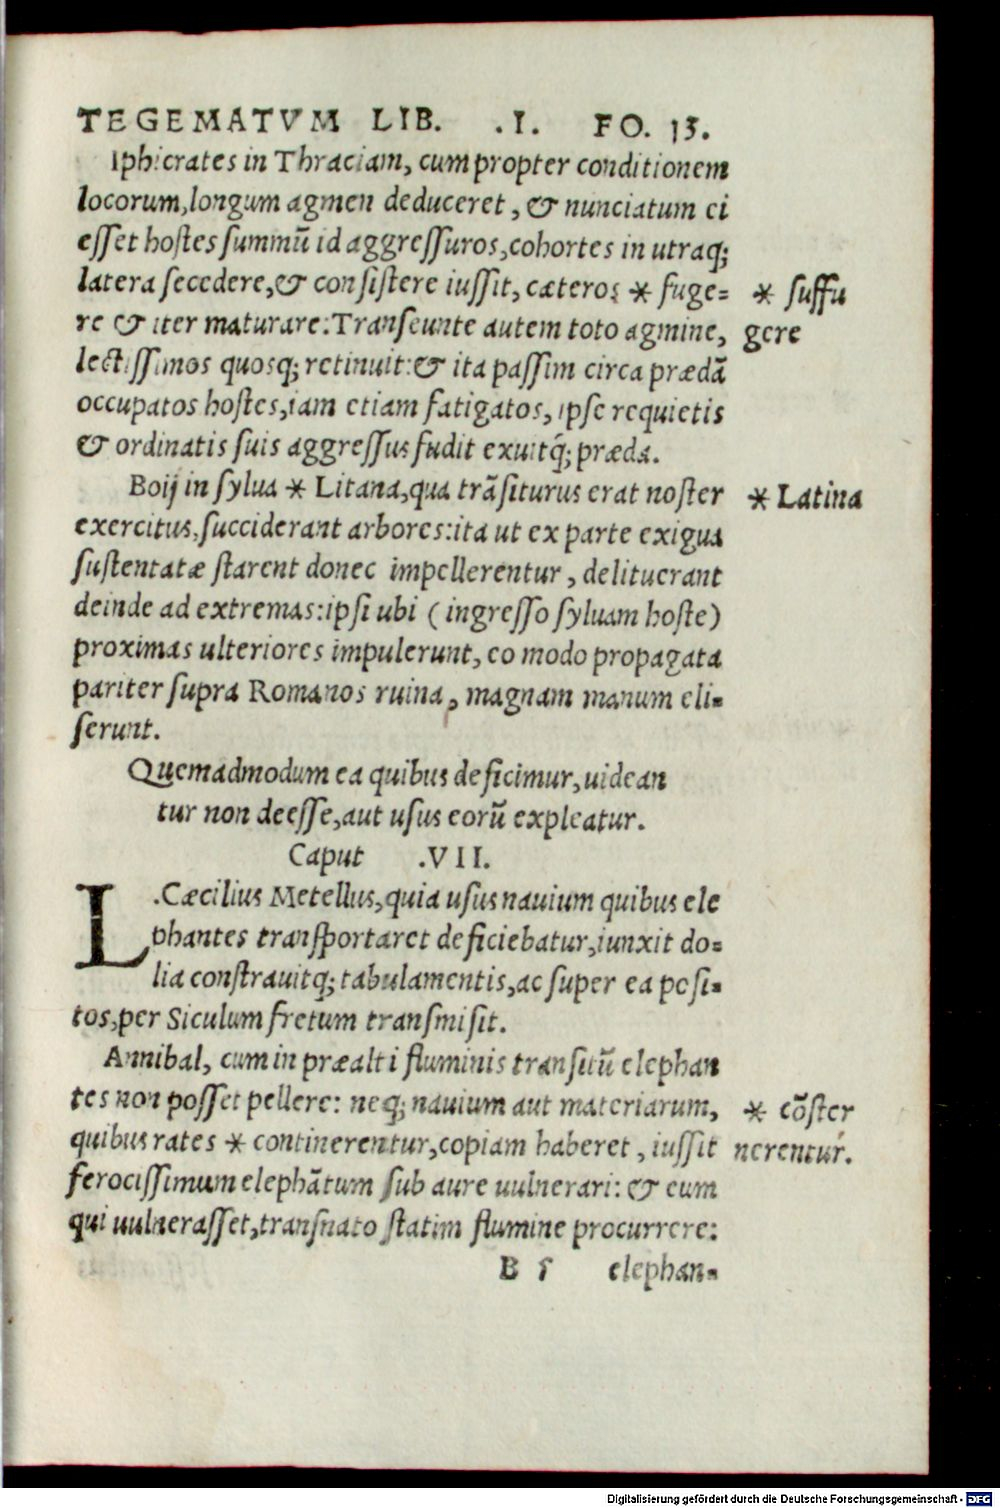 TEGEMATVM LIB. .I. FO. 13.
Iphicrates in Thraciam, cum propter conditionem
locorum, longum agmen deduceret, & nunciatum ei
esset hostes summū id aggressuros, cohortes in utraq;
latera secedere, & consistere iussit, cæteros * fuge=
re & iter maturare: Transeunte autem toto agmine,
lectissimos quosq; retinuit: & ita passim circa prædā
occupatos hostes, iam etiam fatigatos, ipse requietis
& ordinatis suis aggressus fudit exuitq́; præda.
* suffu
gere
Boij in sylua * Litana, qua trāsiturus erat noster
exercitus, succiderant arbores: ita ut ex parte exigua
sustentatæ starent donec impellerentur, delituerant
deinde ad extremas: ipsi ubi (ingresso syluam hoste)
proximas ulteriores impulerunt, eo modo propagata
pariter supra Romanos ruina, magnam manum eli=
serunt.
* Latina
Quemadmodum ea quibus deficimur, uidean
tur non deesse, aut usus eorū expleatur.
Caput .VII.
L.Cæcilius Metellus, quia usus nauium quibus ele
phantes transportaret deficiebatur, iunxit do=
lia constrauitq; tabulamentis, ac super ea posi=
tos, per Siculum fretum transmisit.
Annibal, cum in præalti fluminis transitū elephan
tes non posset pellere: neq; nauium aut materiarum,
quibus rates * continerentur, copiam haberet, iussit
ferocissimum elephātum sub aure uulnerari: & eum
qui uulnerasset, transnato statim flumine procurrere:
* cōster
nerentur.
B 5 elephan=
Digitalisierung gefördert durch die Deutsche Forschungsgemeinschaft - DFG